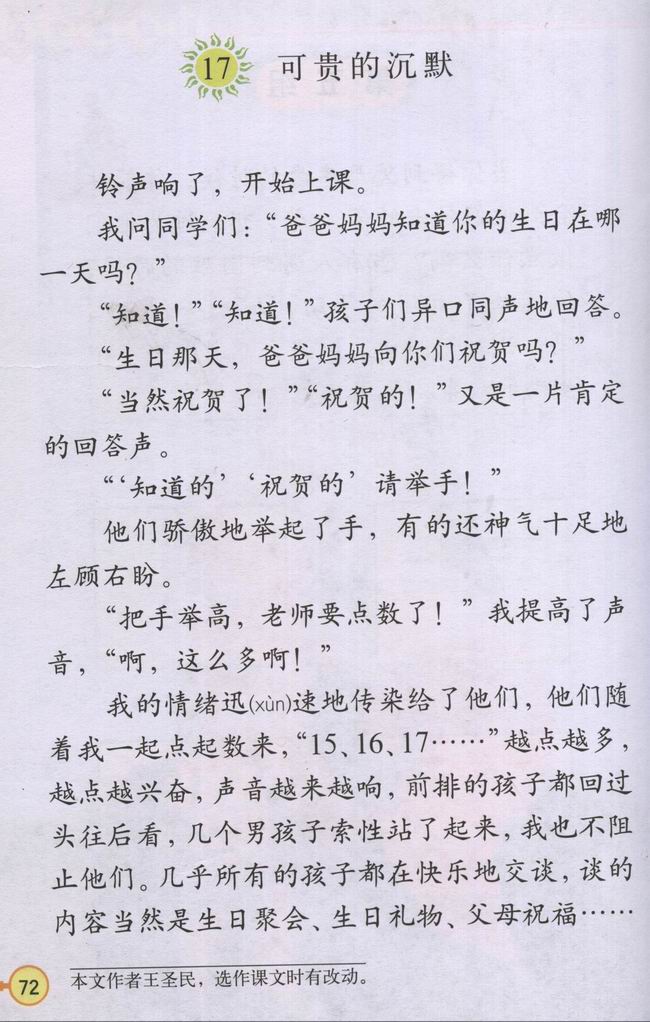 17 可贵的沉默
铃声响了，开始上课。
我问同学们：“爸爸妈妈知道你的生日在哪
一天吗？”
“知道！”“知道！”孩子们异口同声地回答。
“生日那天，爸爸妈妈向你们祝贺吗？”
“当然祝贺了！”“祝贺的！”又是一片肯定
的回答声。
“‘知道的’‘祝贺的’请举手！”
他们骄傲地举起了手，有的还神气十足地
左顾右盼。
“把手举高，老师要点数了！”我提高了声
音，“啊，这么多啊！”
我的情绪迅(xùn)速地传染给了他们，他们随
着我一起点起数来，“15、16、17……”越点越多，
越点越兴奋，声音越来越响，前排的孩子都回过
头往后看，几个男孩子索性站了起来，我也不阻
止他们。几乎所有的孩子都在快乐地交谈，谈的
内容当然是生日聚会、生日礼物、父母祝福……
本文作者王圣民，选作课文时有改动。
72